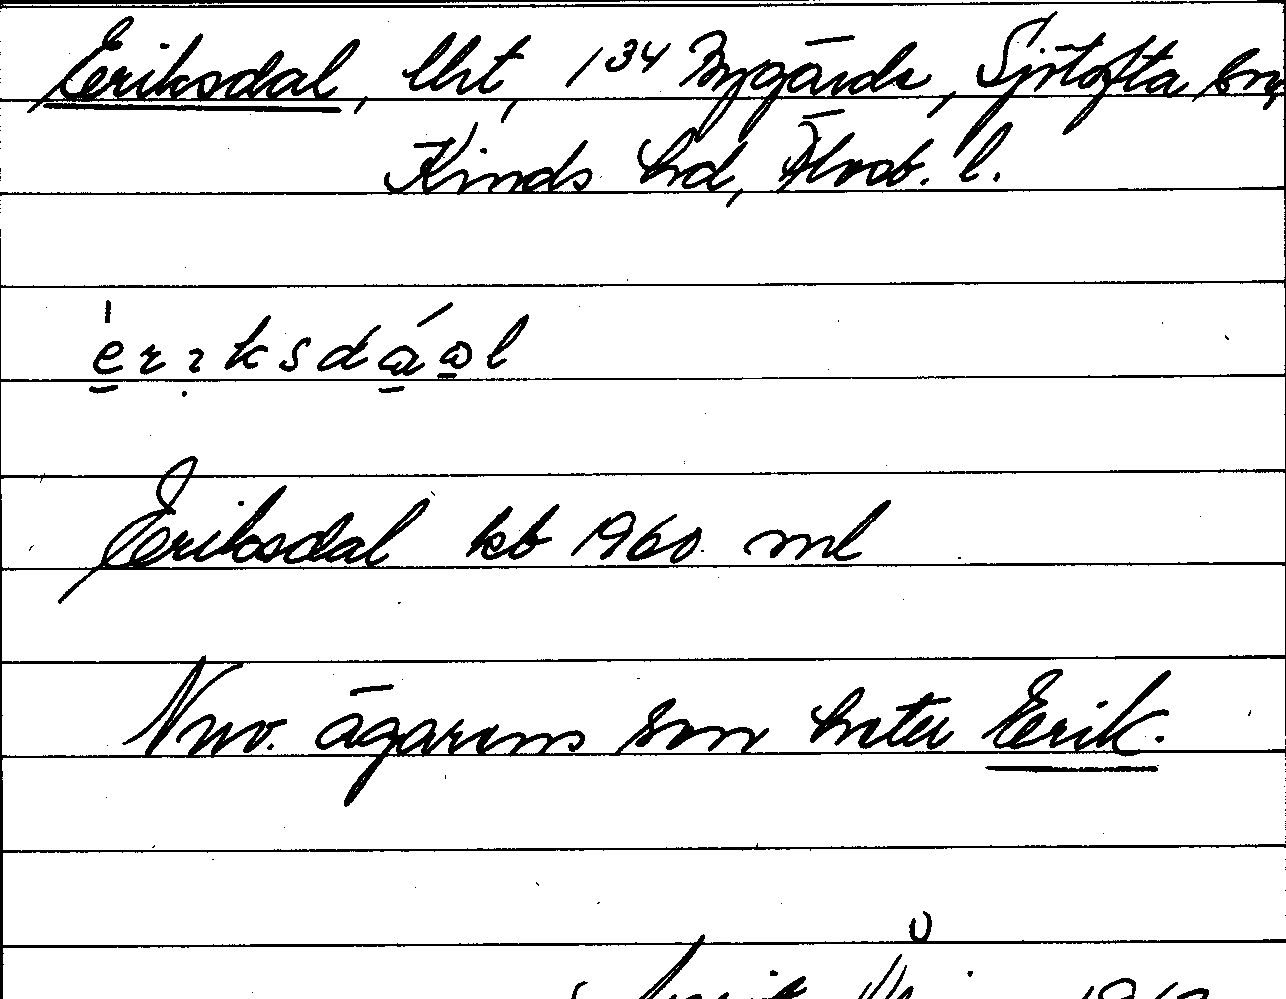 Eriksdal, lht, 1³⁴ Nygärde, Sjötofta sn,
Kinds hd, Älvsb. l.
eriksdɑ́ɑl
Eriksdal kb 1960 ml
Nuv. ägarens son heter Erik.